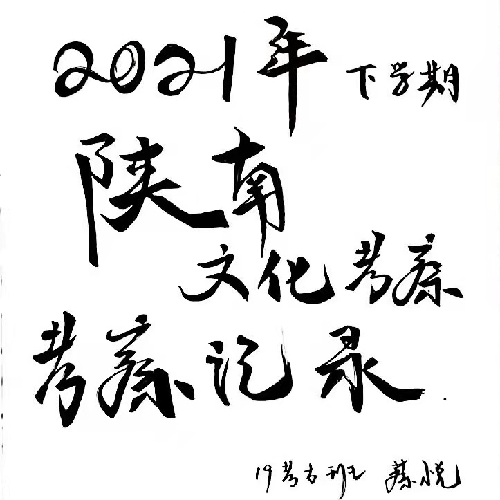 2021年下学期
陕南
文化考察
考察记录
19考古班 蔡悦